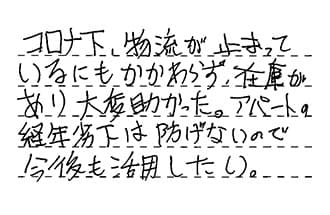 コロナ下、物流が止まって
いるにもかかわらず、在庫が
あり大変助かった。アパートの
経年劣下は防げないので
今後も活用したい。